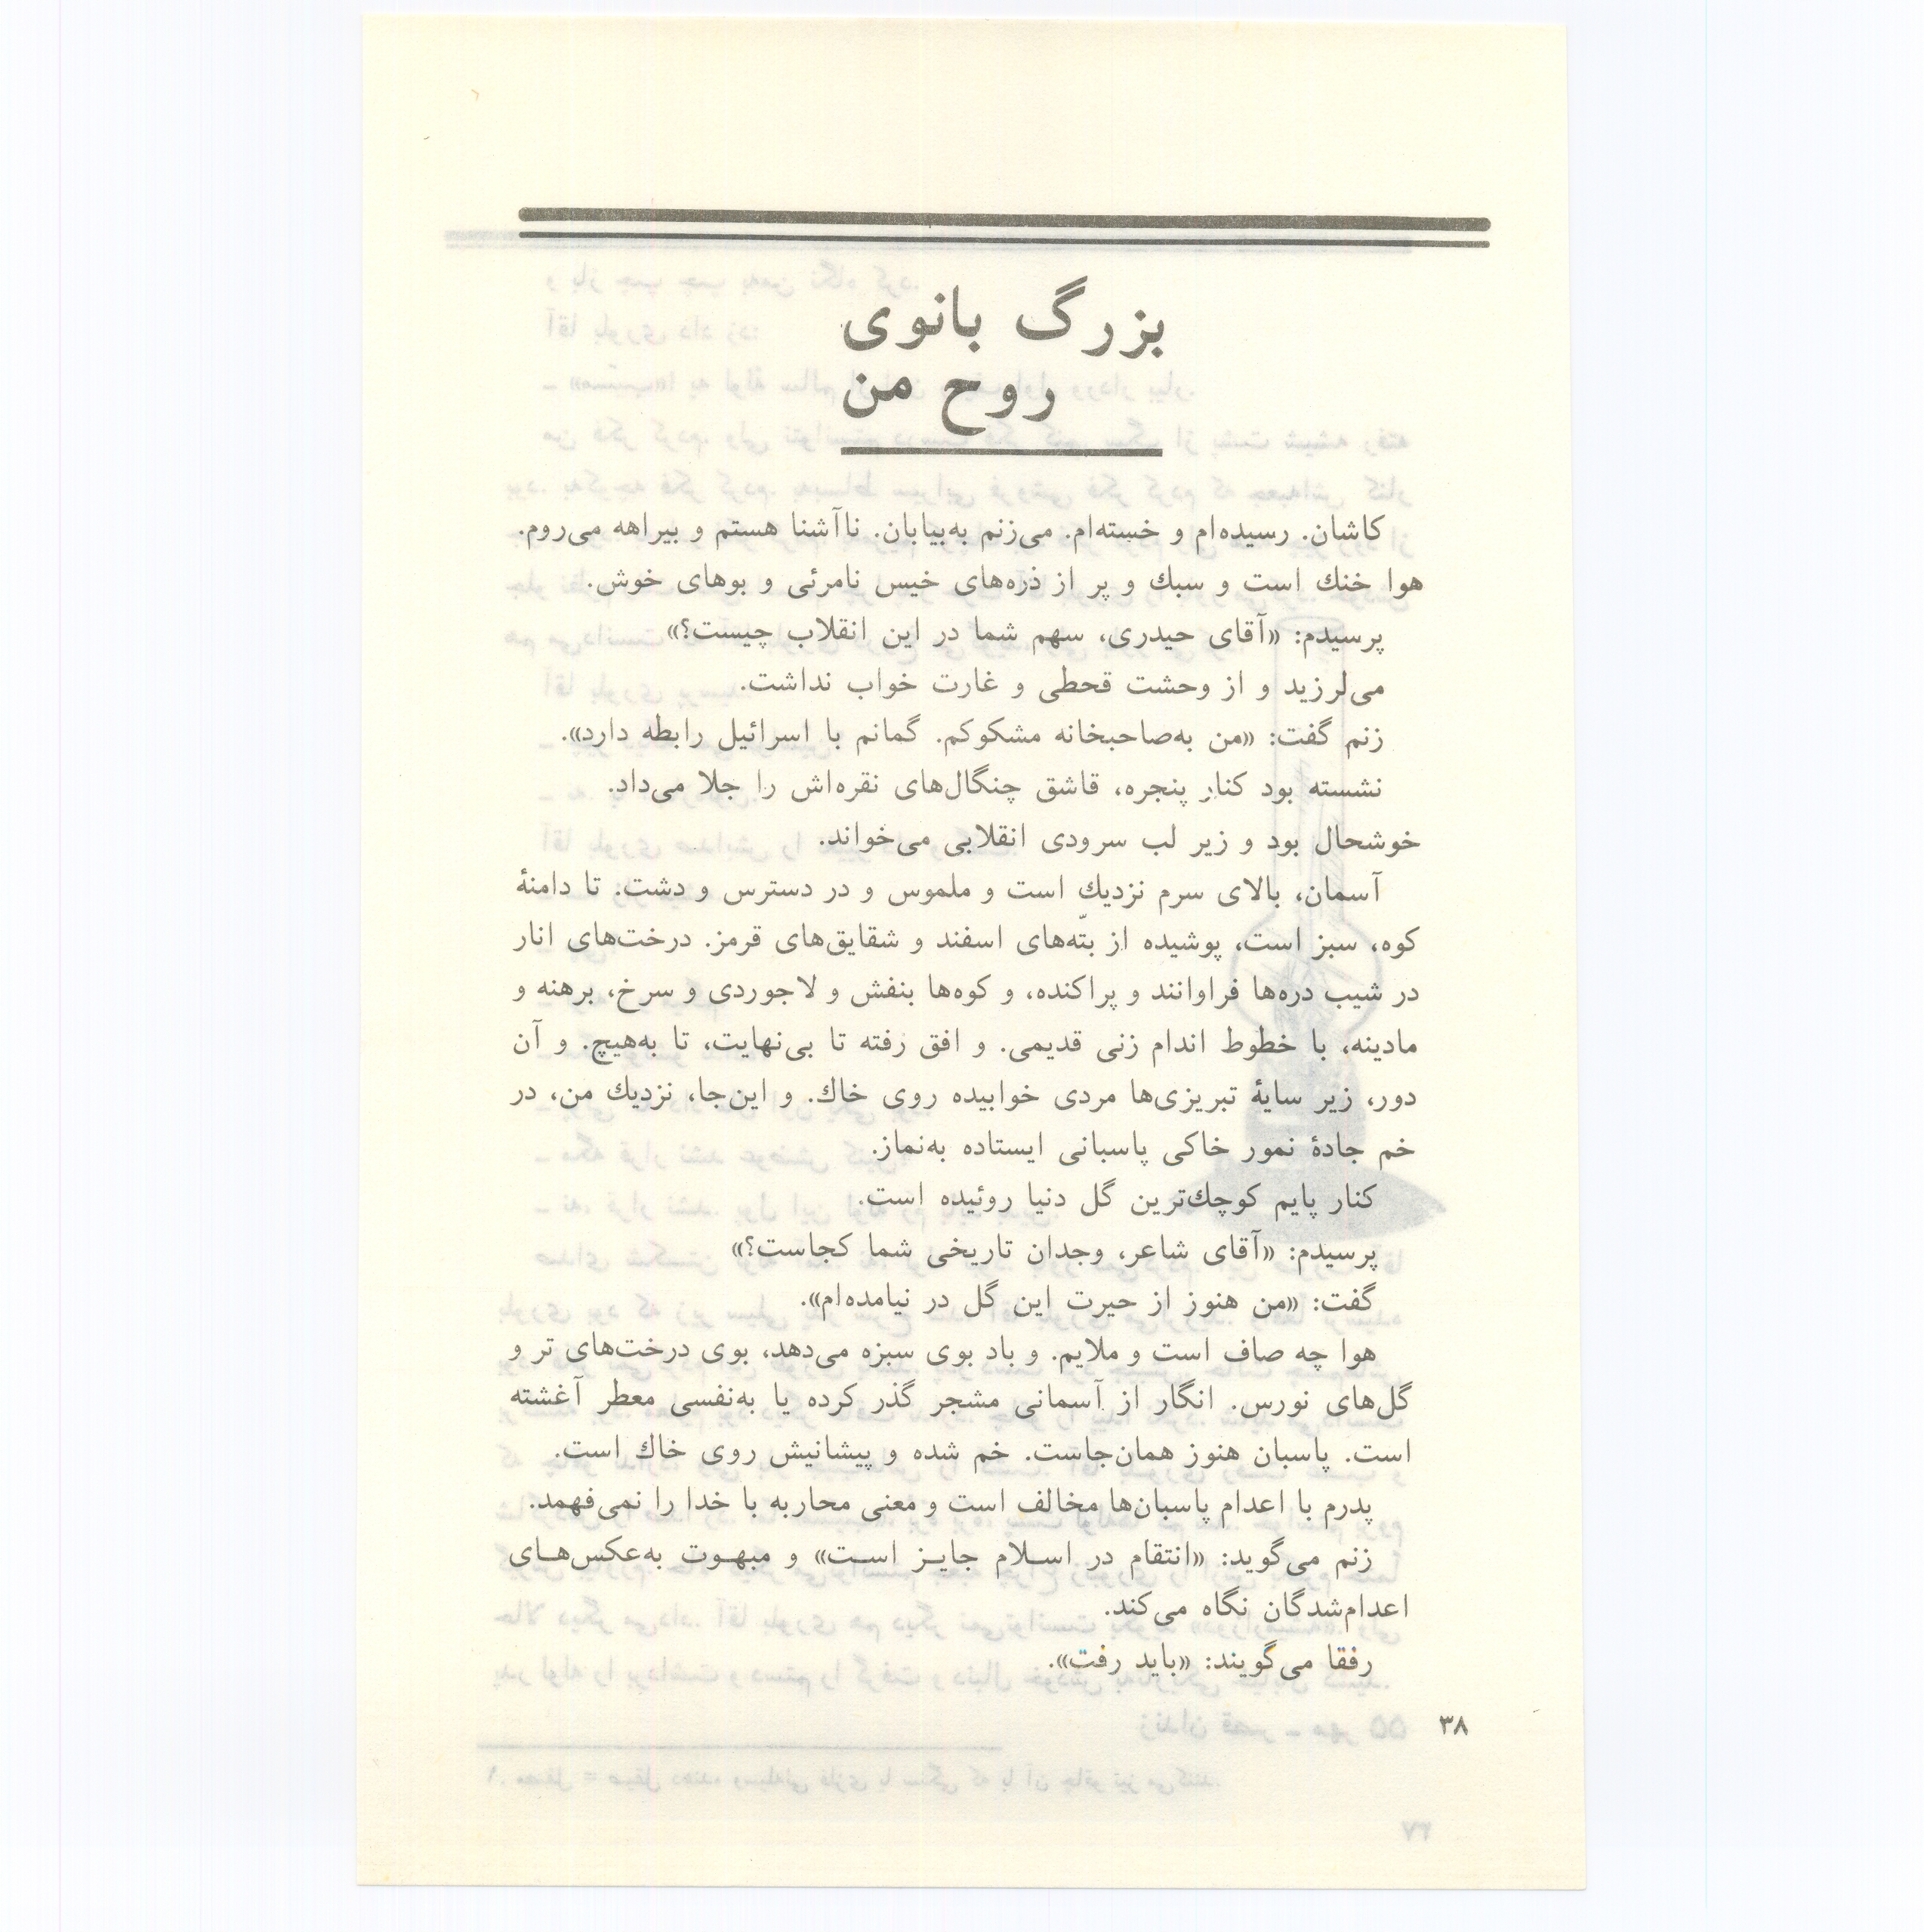 بزرگ بانوی
روح من
کاشان. رسیده‌ام و خسته‌ام. می‌زنم به‌بیابان. ناآشنا هستم و بیراهه می‌روم.
هوا خنك است و سبك و پر از ذره‌های خیس نامرئی و بوهای خوش.
پرسیدم: «آقای حیدری، سهم شما در این انقلاب چیست؟»
می‌لرزید و از وحشت قحطی و غارت خواب نداشت.
زنم گفت: «من به‌صاحبخانه مشکوکم. گمانم با اسرائیل رابطه دارد».
نشسته بود کنار پنجره، قاشق چنگال‌های نقره‌اش را جلا می‌داد.
خوشحال بود و زیر لب سرودی انقلابی می‌خواند.
آسمان، بالای سرم نزدیك است و ملموس و در دسترس و دشت. تا دامنهٔ
کوه، سبز است، پوشیده از بتّه‌های اسفند و شقایق‌های قرمز. درخت‌های انار
در شیب دره‌ها فراوانند و پراکنده، و کوه‌ها بنفش و لاجوردی و سرخ، برهنه و
مادینه، با خطوط اندام زنی قدیمی. و افق رفته تا بی‌نهایت، تا به‌هیچ. و آن
دور، زیر سایهٔ تبریزی‌ها مردی خوابیده روی خاك. و این‌جا، نزدیك من، در
خم جادهٔ نمور خاکی پاسبانی ایستاده به‌نماز.
کنار پایم کوچك‌ترین گل دنیا روئیده است.
پرسیدم: «آقای شاعر، وجدان تاریخی شما کجاست؟»
گفت: «من هنوز از حیرت این گل در نیامده‌ام».
هوا چه صاف است و ملایم. و باد بوی سبزه می‌دهد، بوی درخت‌های تر و
گل‌های نورس. انگار از آسمانی مشجر گذر کرده یا به‌نفسی معطر آغشته
است. پاسبان هنوز همان‌جاست. خم شده و پیشانیش روی خاك است.
پدرم با اعدام پاسبان‌ها مخالف است و معنی محاربه با خدا را نمی‌فهمد.
زنم می‌گوید: «انتقام در اسـلام جایـز اسـت» و مبهـوت به‌عکس‌هـای
اعدام‌شدگان نگاه می‌کند.
رفقا می‌گویند: «باید رفت».
۳۸